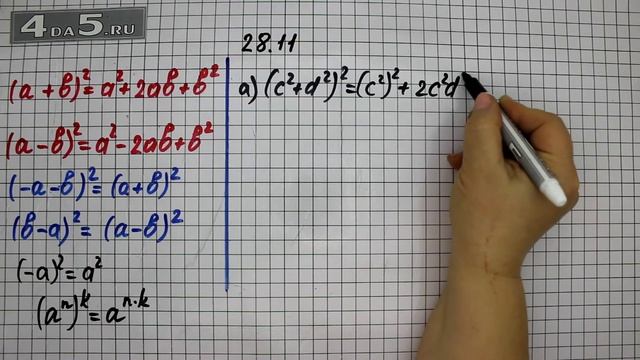 4DA5.RU
28.11
(a + b)² = a² + 2ab + b²
(a - b)² = a² - 2ab + b²
(-a - b)² = (a + b)²
(b - a)² = (a - b)²
(-a)² = a²
(aⁿ)ᵏ = aⁿ·ᵏ
а) (c² + d²)² = (c²)² + 2c²d